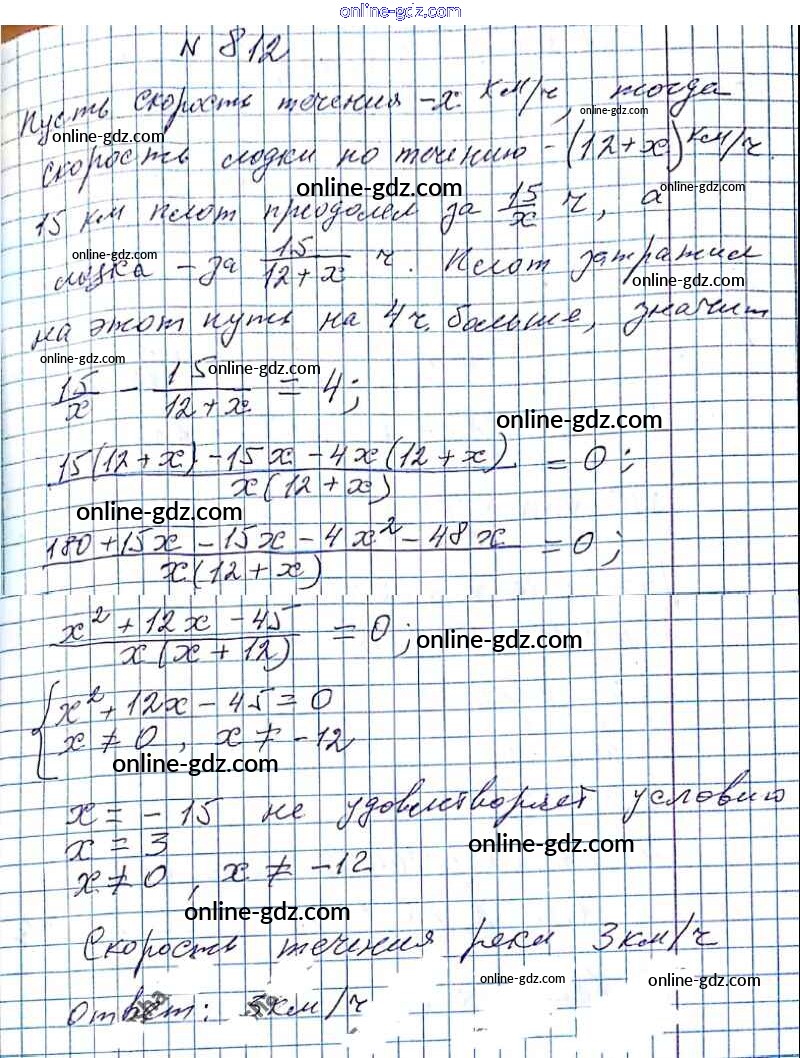 online-gdz.com
N 812
Пусть скорость течения - x км/ч, тогда
online-gdz.com
online-gdz.com
скорость лодки по течению - (12+x) км/ч.
online-gdz.com
online-gdz.com
15 км плот преодолел за 15/x ч, а
online-gdz.com
лодка - за 15/(12+x) ч. Плот затратил
online-gdz.com
на этот путь на 4 ч. больше, значит
online-gdz.com
online-gdz.com
15/x - 15/(12+x) = 4;
online-gdz.com
(15(12+x) - 15x - 4x(12+x))/(x(12+x)) = 0;
online-gdz.com
(180+15x - 15x - 4x² - 48x)/(x(12+x)) = 0;
(x² + 12x - 45)/(x(x+12)) = 0;
online-gdz.com
{ x² + 12x - 45 = 0
x ≠ 0, x ≠ -12
online-gdz.com
x = - 15 не удовлетворяет условию
x = 3
online-gdz.com
x ≠ 0, x ≠ -12
online-gdz.com
Скорость течения реки 3 км/ч
online-gdz.com
online-gdz.com
Ответ: 3 км/ч